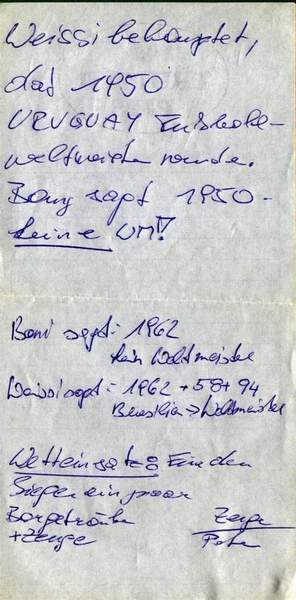 Weissi behauptet,
daß 1950
URUGUAY Fußball-
weltmeister wurde.
Bony sagt 1950 -
keine WM!!
Boni sagt: 1962
kein Weltmeister
Weissi sagt: 1962 + 58 + 94
Brasilien > Weltmeister
Wetteinsatz: Für den
Sieger ein paar
Bargetränke
+ Zeuge
Zeuge
Peter